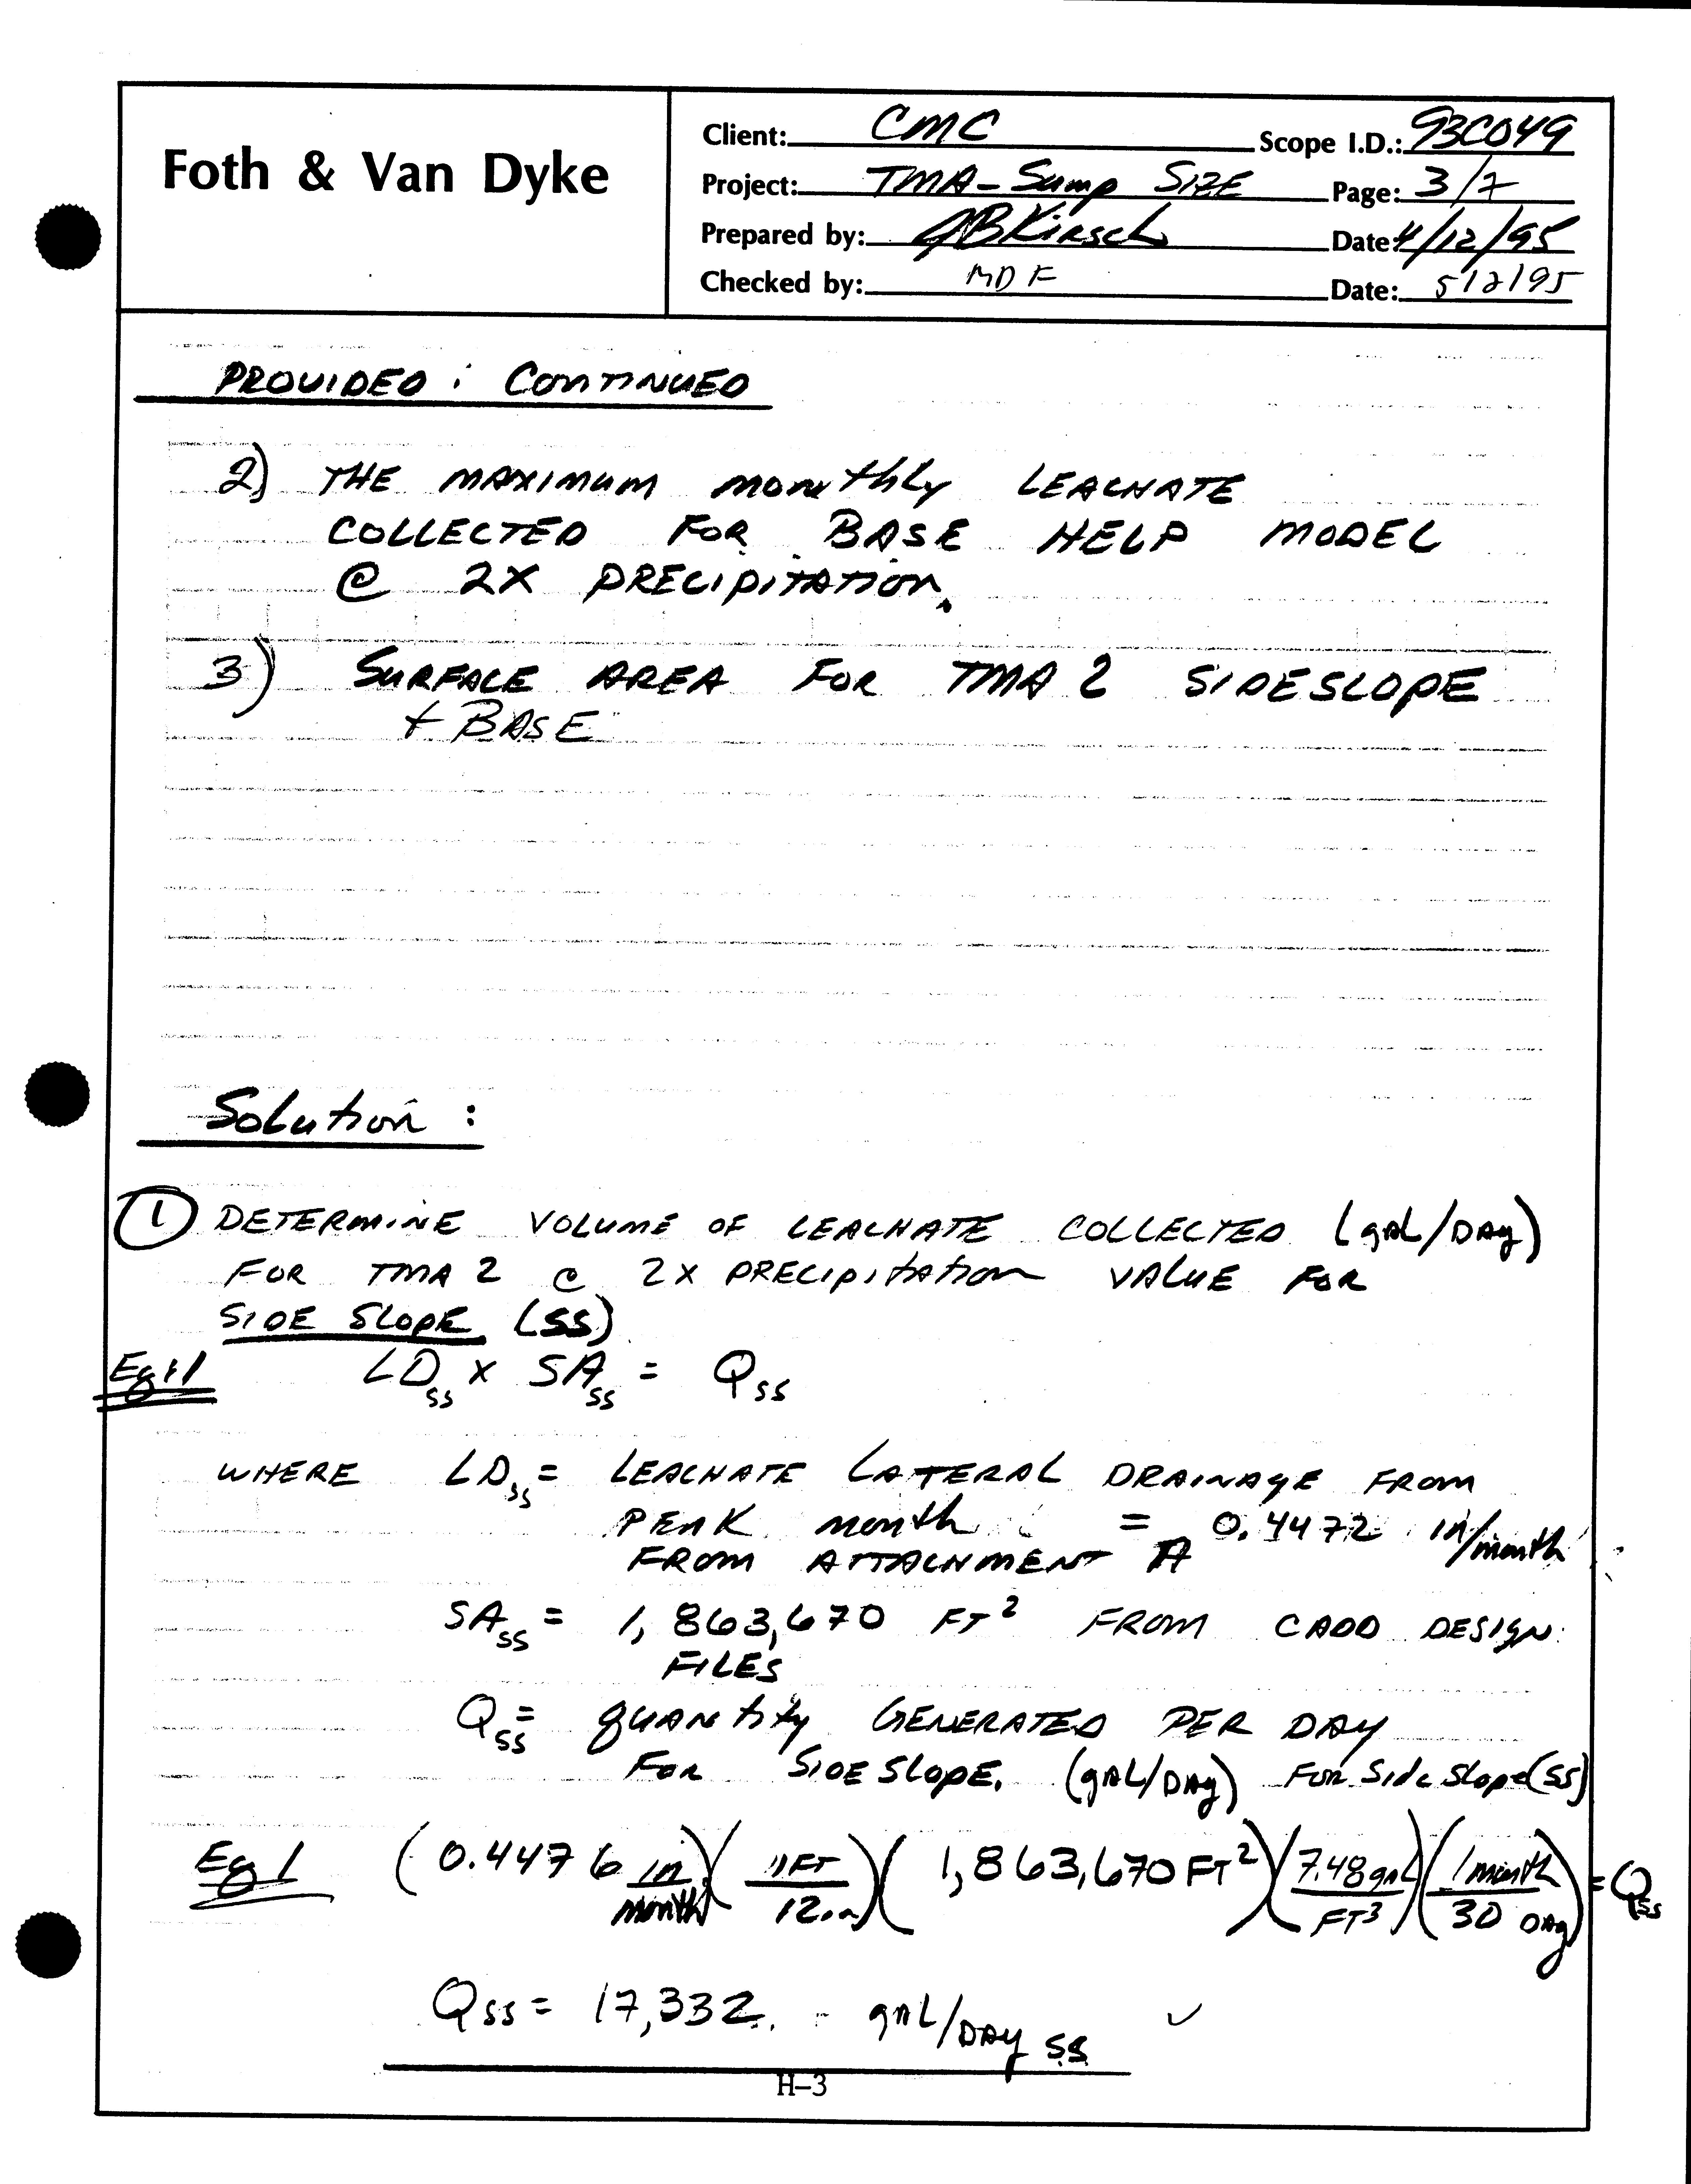 Foth & Van Dyke
Client: CMC Scope I.D.: 93C049
Project: TMA-Sump SIZE Page: 3/7
Prepared by: JBKirsch Date: 4/12/95
Checked by: MDF Date: 5/2/95
PROVIDED: CONTINUED
2) THE MAXIMUM monthly LEACHATE
COLLECTED FOR BASE HELP MODEL
@ 2X PRECIPITATION.
3) SURFACE AREA FOR TMA 2 SIDESLOPE
+ BASE
Solution:
① DETERMINE VOLUME OF LEACHATE COLLECTED (gAL/DAy)
FOR TMA 2 @ 2X PRECIPITATION VALUE FOR
SIDE SLOPE (SS)
Eq#1 LDss x SAss = Qss
WHERE LDss = LEACHATE LATERAL DRAINAGE FROM
PEAK month = 0.4472 in/month
FROM ATTACHMENT A
SAss = 1,863,670 FT² FROM CADD DESIGN
FILES
Qss = QUANTITY GENERATED PER DAY
FOR SIDE SLOPE. (gAL/DAy) FOR Side Slope (SS)
Eq 1 (0.4476 in/month)(1 FT/12 in)(1,863,670 FT²)(7.48 gal/FT³)(1 month/30 DAy) = Qss
Qss = 17,332. gAL/DAY SS ✓
H-3